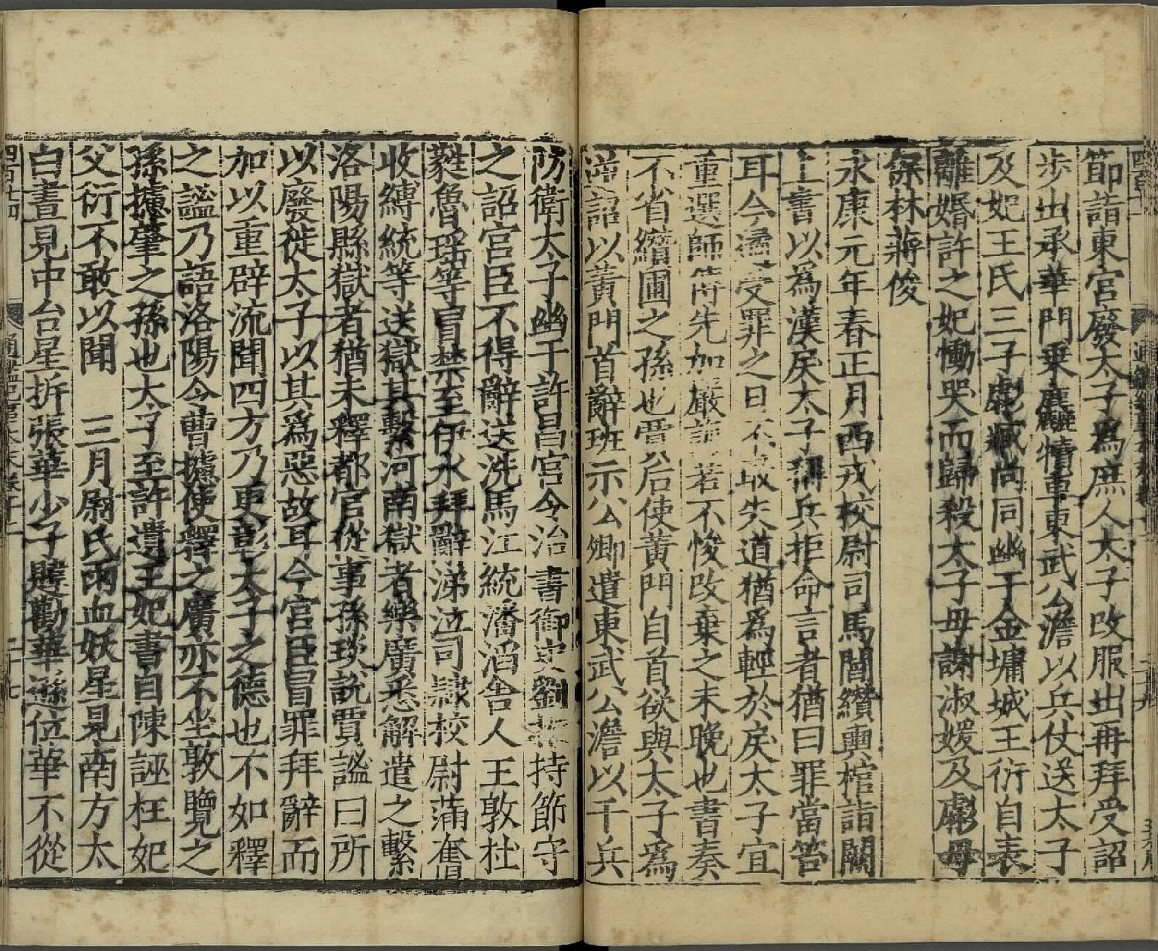 節詣東宮廢太子爲庶人太子改服出再拜受詔
步出承華門乗麤犢車東武公澹以兵仗送太子
及妃王氏三子虨臧尚同幽于金墉城王衍自表
離婚許之妃慟哭而歸殺太子母謝淑媛及虨母
保林蔣俊
永康元年春正月西戎校尉司馬閻纘輿棺詣闕
上書以為漢戾太子稱兵拒命言者猶曰罪當笞
耳今遹受罪之日不敢失道猶爲輕於戾太子宜
重選師傅先加嚴誨若不悛改棄之未晚也書奏
不省纘圃之孫也賈后使黃門自首欲與太子爲
逆詔以黃門首辭班示公卿遣東武公澹以千兵
防衛太子幽于許昌宮令治書御史劉振持節守
之詔宮臣不得辭送洗馬江統潘滔舍人王敦杜
蕤魯瑶等冒禁至伊水拜辭涕泣司隷校尉滿奮
收縛統等送獄其繫河南獄者樂廣悉解遣之繫
洛陽縣獄者猶未釋都官從事孫琰說賈謐曰所
以廢徙太子以其爲惡故耳今宮臣冒罪拜辭而
加以重辟流聞四方乃更彰太子之德也不如釋
之謐乃語洛陽令曹攄使釋之廣亦不坐敦覽之
孫攄肇之孫也太子至許遺王妃書自陳誣枉妃
父衍不敢以聞　三月尉氏雨血妖星見南方太
白晝見中台星拆張華少子韙勸華遜位華不從